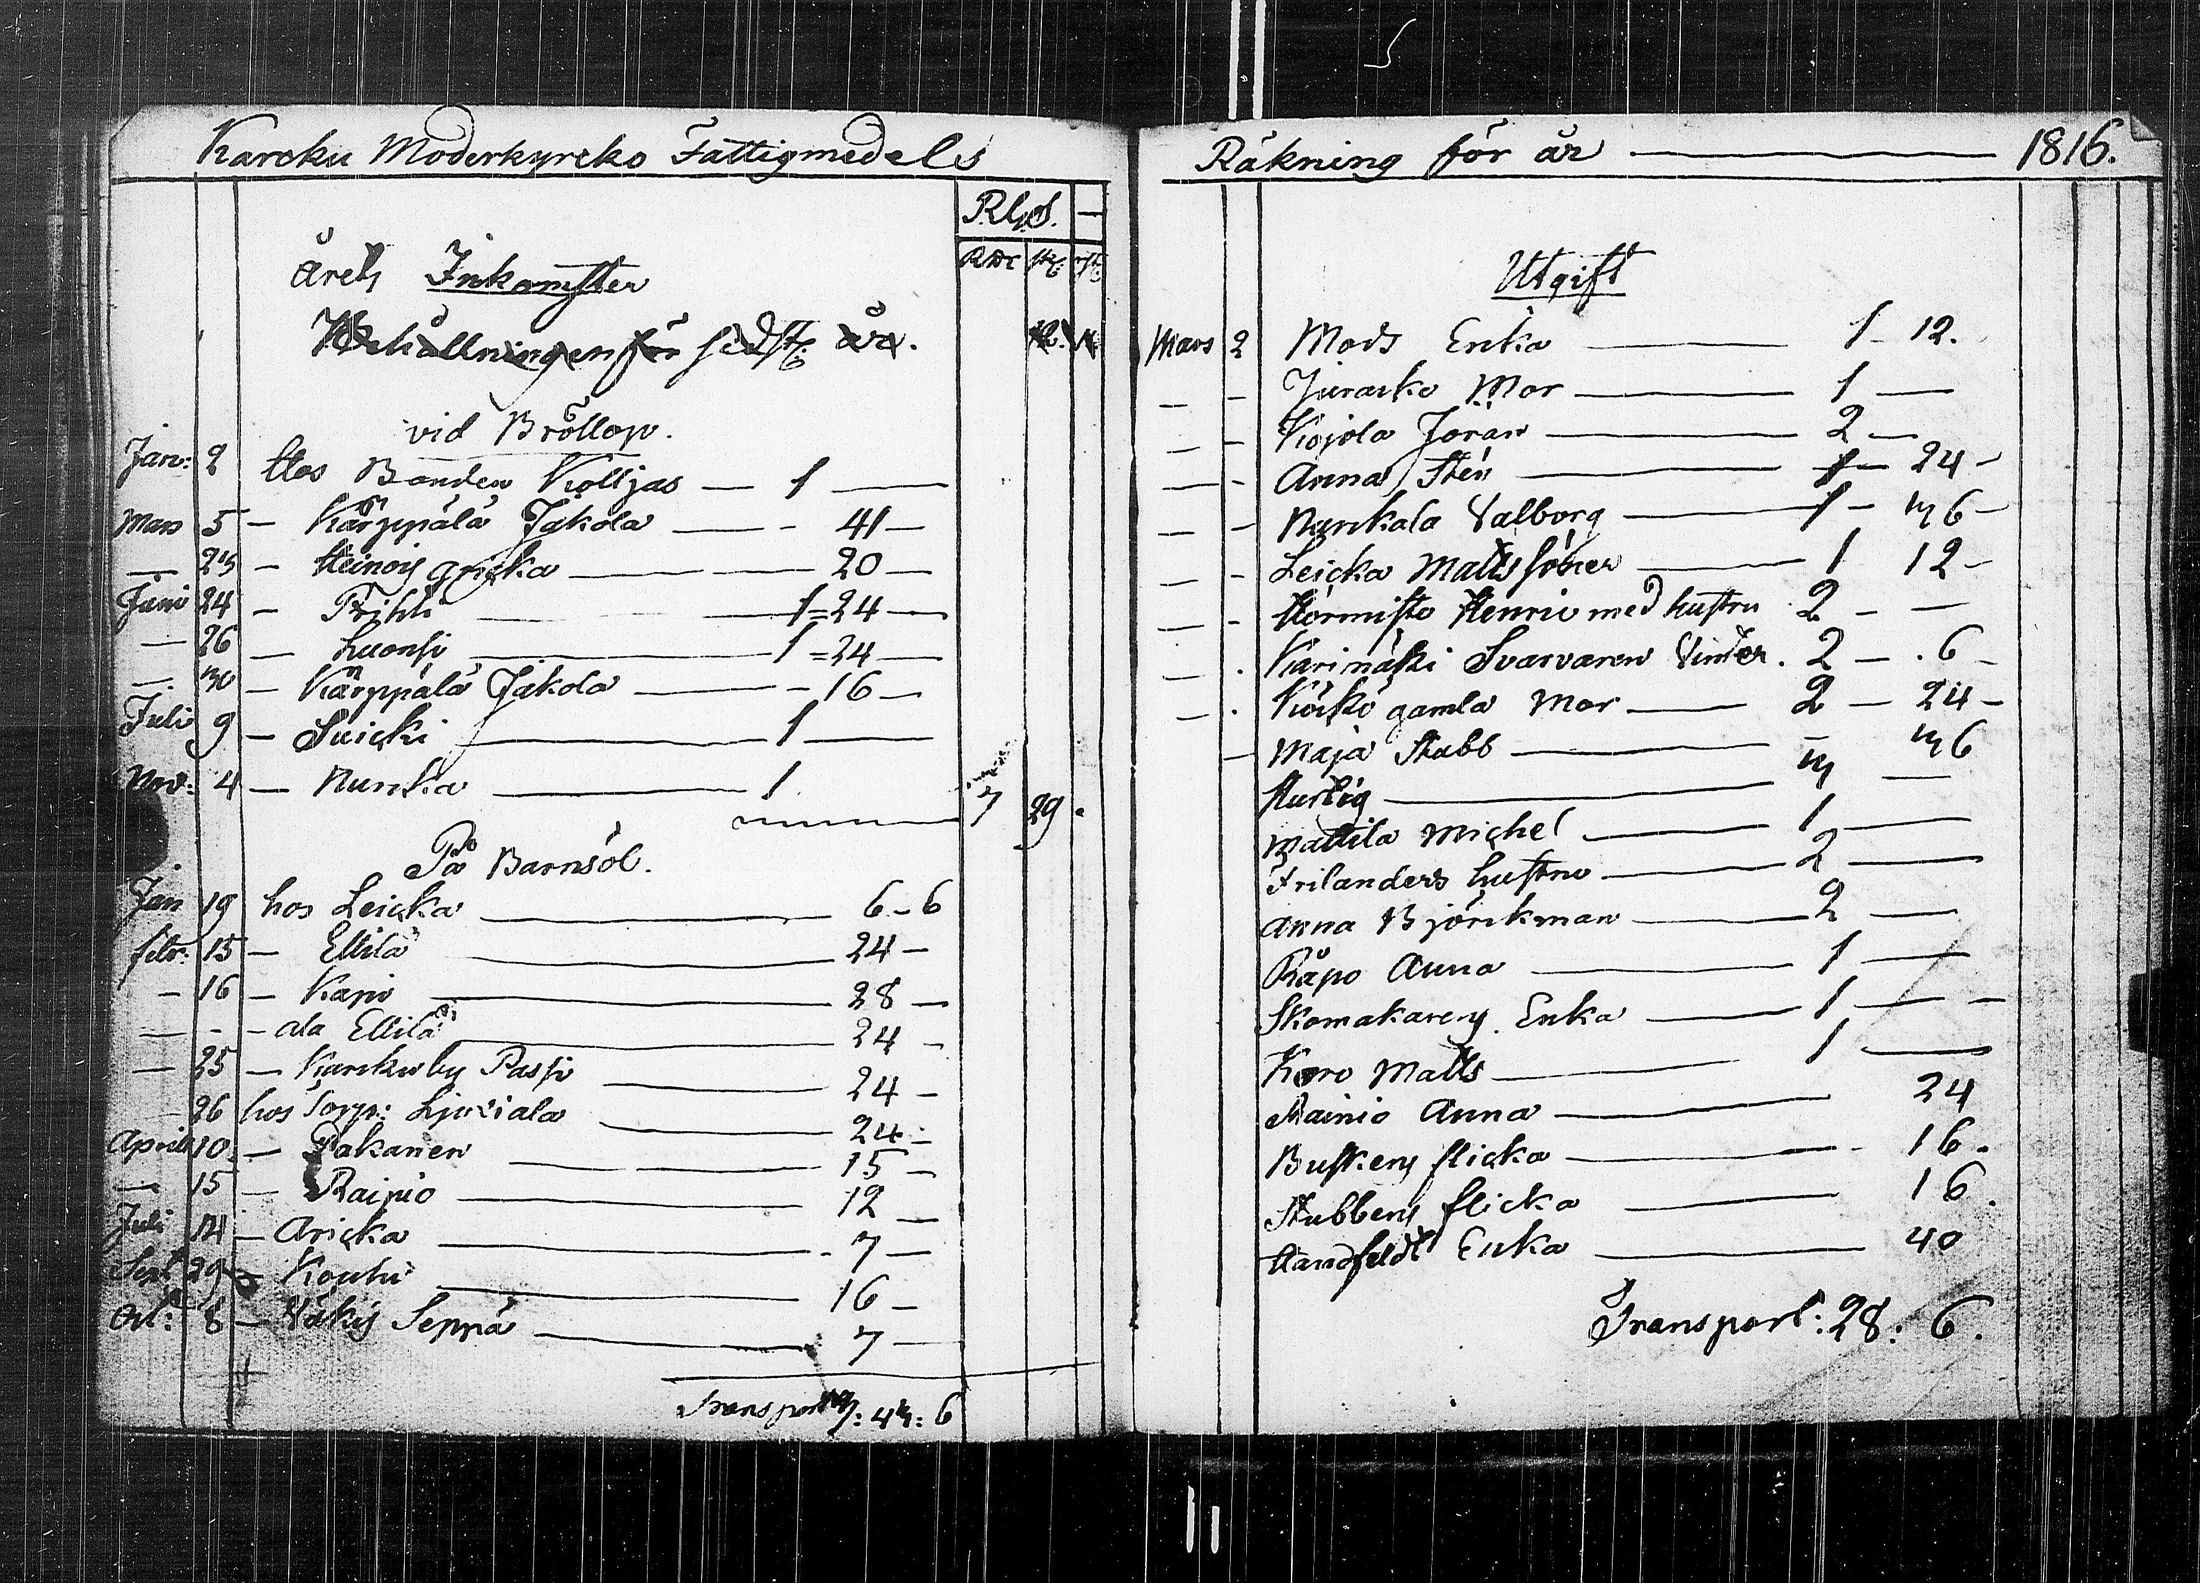 Karcku Moderkyrcko Fattigmedels
R.G.S. —
RDr sk: rst:
årets Inkomster
Behållningen för sidst: år.
vid Bröllop.
Jan: 2 Hos Bonden Kolljas — 1 —
Mars 5 — Kärppälä Jakola — - 41 —
— 25 — Heinois gricka — 20 —
Juni 24 — Frihti — 1 = 24 —
— 26 — Luonsi — 1 = 24 —
— 30 — Kärppälä Jakola — - 16 —
Juli 9 — Suicki — 1 —
Nov: 4 — Nunka — 1 7 29 .
På Barnsöl.
Jan 19 hos Leicka — 6 - 6
febr: 15 — Ellilä — 24 —
— 16 — Karjo — 28 —
— - - ala Ellilä — 24 -
— 25 — Karckuby Passi — 24 -
— 26 hos Torp: Ljuxiala — 24 -
April 10 — Pakanen — 15 —
— 15 — Rainio — 12 —
Juli 14 — Aricka — 7 —
Sept 29 — Kouhi — 16 —
Oct: 8 — Väkis Seppä — 7 —
Transport : 43 : 6
Räkning för år — 1816.
Utgift
Mars 2 Mods Erika — 1 - 12.
— - Juracko Mor — 1 —
— - Kojola Jöran — 2 —
— - Anna Stén — 1 — 24 -
— - Nunkala Valborg — 1 - 36 -
— - Leicka Matts söner — 1 12 -
— - Hörmistö Henric med hustru 2 - —
— . Karimäki Svarvaren 2 — . 6 -
— . Köckö gamla Mor — 2 — 24 -
— Maja Stubb — 36
Hurtig — 3 —
Mattila Michel — 1 —
Frilanders hustru — 2 —
Anna Björckman — 2 —
Råpo Anna — 1 —
Skomakarens Erika — 1 — -
Koro Matts — 1 —
Rainio Anna — 24
Buskens flicka — 16 .
Stubbens flicka — 16 .
Handfeldt Erika — 40
Transport: 28 : 6 .